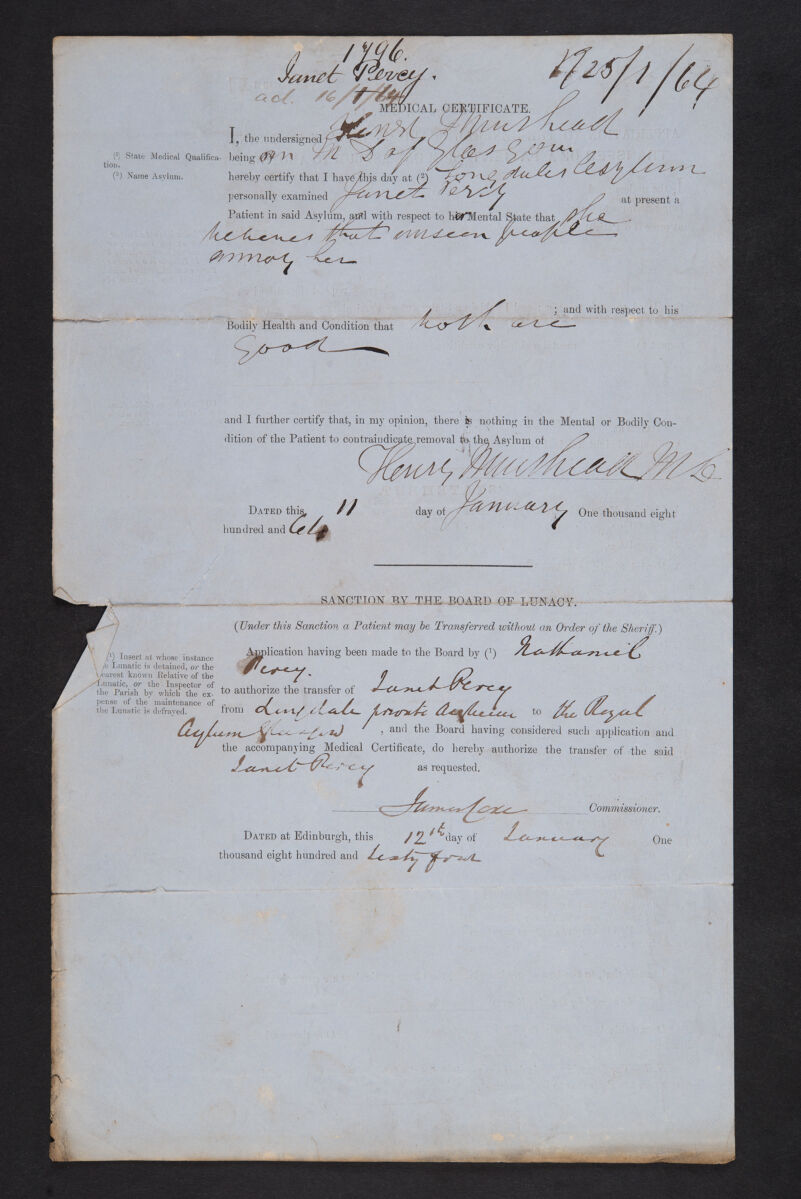 1796.
Janet Percy.
25/1/64
ad. 16/1/64
MEDICAL CERTIFICATE.
I, the undersigned Henry Muirhead
(¹) State Medical Qualifica-
tion.
being an M D of Glasgow
(²) Name Asylum.
hereby certify that I have this day at (²) Longdales Asylum
personally examined Janet Percy at present a
Patient in said Asylum, and with respect to her Mental State that she
believes that unseen people
annoy her
; and with respect to his
Bodily Health and Condition that both are
good
and I further certify that, in my opinion, there is nothing in the Mental or Bodily Con-
dition of the Patient to contraindicate removal to the Asylum of
Henry Muirhead M D
DATED this 11 day of January One thousand eight
hundred and 64
SANCTION BY THE BOARD OF LUNACY.
(Under this Sanction a Patient may be Transferred without an Order of the Sheriff.)
(¹) Insert at whose instance
Lunatic is detained, or the
nearest known Relative of the
Lunatic, or the Inspector of
the Parish by which the ex-
pense of the maintenance of
the Lunatic is defrayed.
Application having been made to the Board by (¹) Nathaniel
Percy.
to authorize the transfer of Janet Percy
from Longdale private Asylum to the Royal
Asylum Glasgow , and the Board having considered such application and
the accompanying Medical Certificate, do hereby authorize the transfer of the said
Janet Percy as requested.
James Coxe Commissioner.
DATED at Edinburgh, this 12th day of January One
thousand eight hundred and sixty four